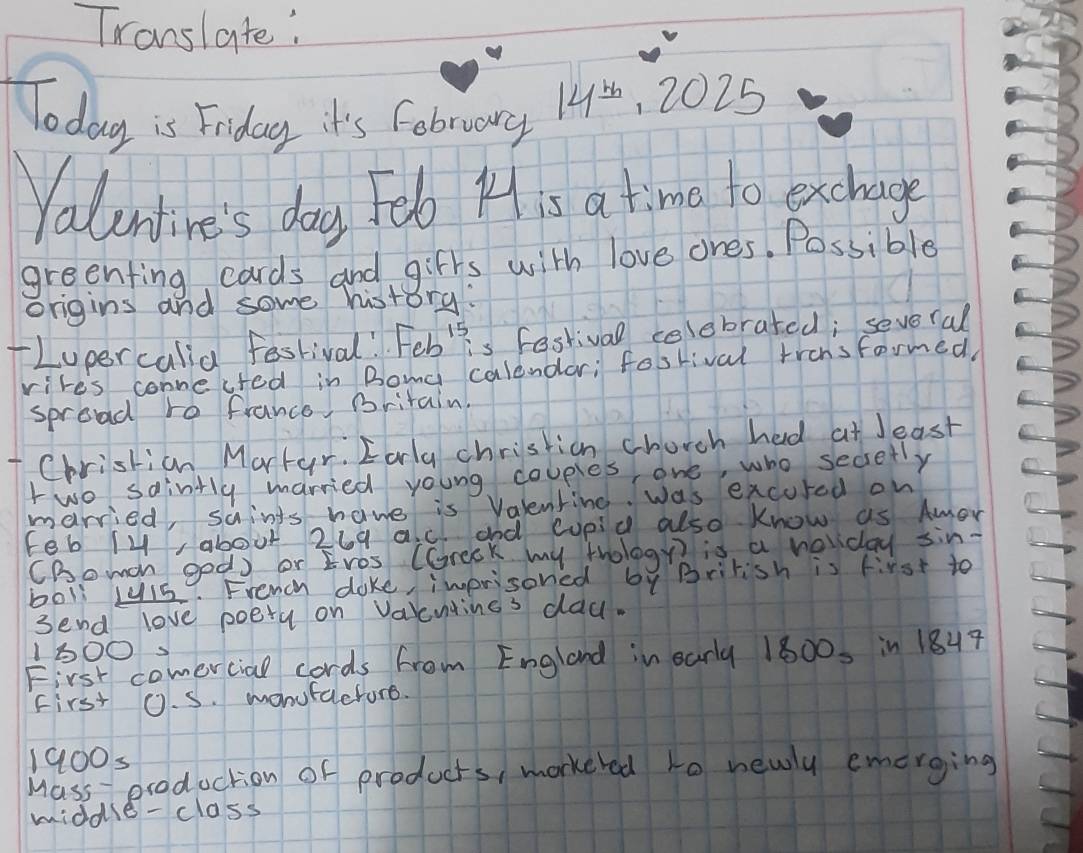 Translate:
Today is Friday it's February 14th, 2025
Valentine's day Feb 14 is a time to exchage
greenting cards and gifts with love ones. Possible
origins and some history:
- Lupercalia festival: Feb 15 is festival celebrated; several
rites connected in Roma calendar; festival transformed,
spread to france, Britain.
- Christian Martyr. Early christian church had at least
two saintly married young couples, one, who secretly
married, saints name is Valentine. Was excuted on
Feb 14, about 269 a.c. and cupid also know as Amor
(Roman god) or Eros (Greek my thology) is a holiday sin-
boli 1415. French duke, imprisoned by British is first to
send love poetry on Valentines day.
1800s
First comercial cards from England in early 1800s in 1847
First U.S. manufacture.
1900s
Mass-production of products, marketed to newly emerging
middle-class